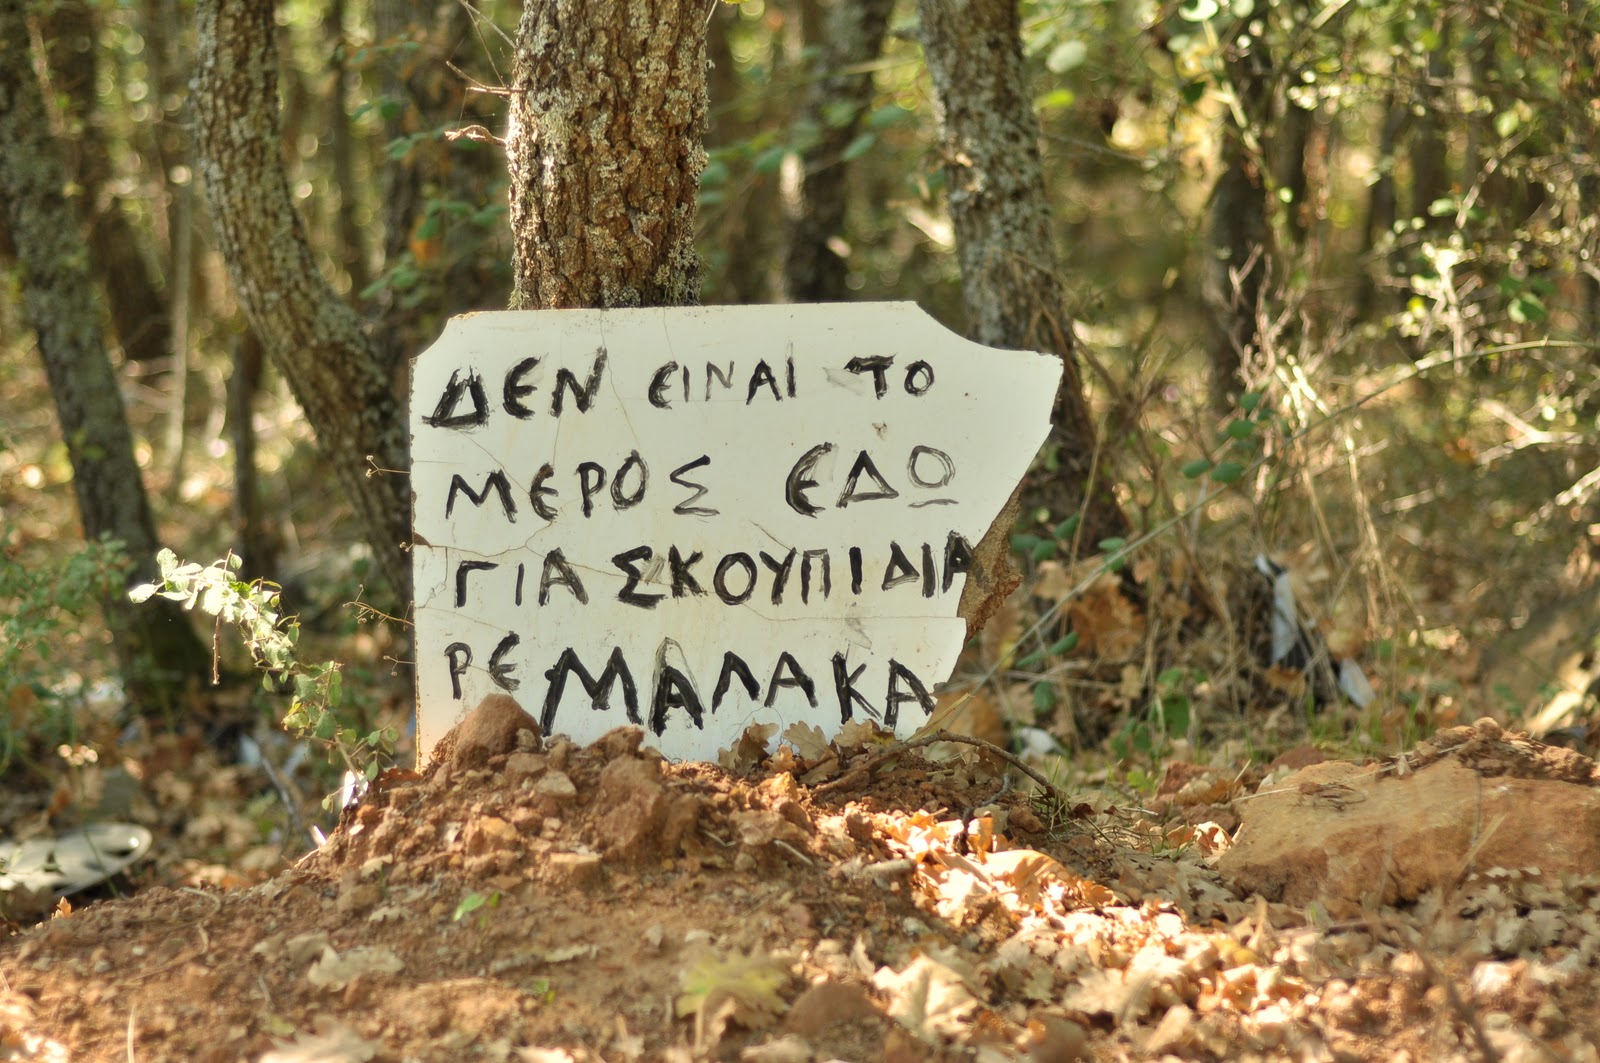 ΔΕΝ ΕΙΝΑΙ ΤΟ
ΜΕΡΟΣ ΕΔΩ
ΓΙΑ ΣΚΟΥΠΙΔΙΑ
ΡΕ ΜΑΛΑΚΑ